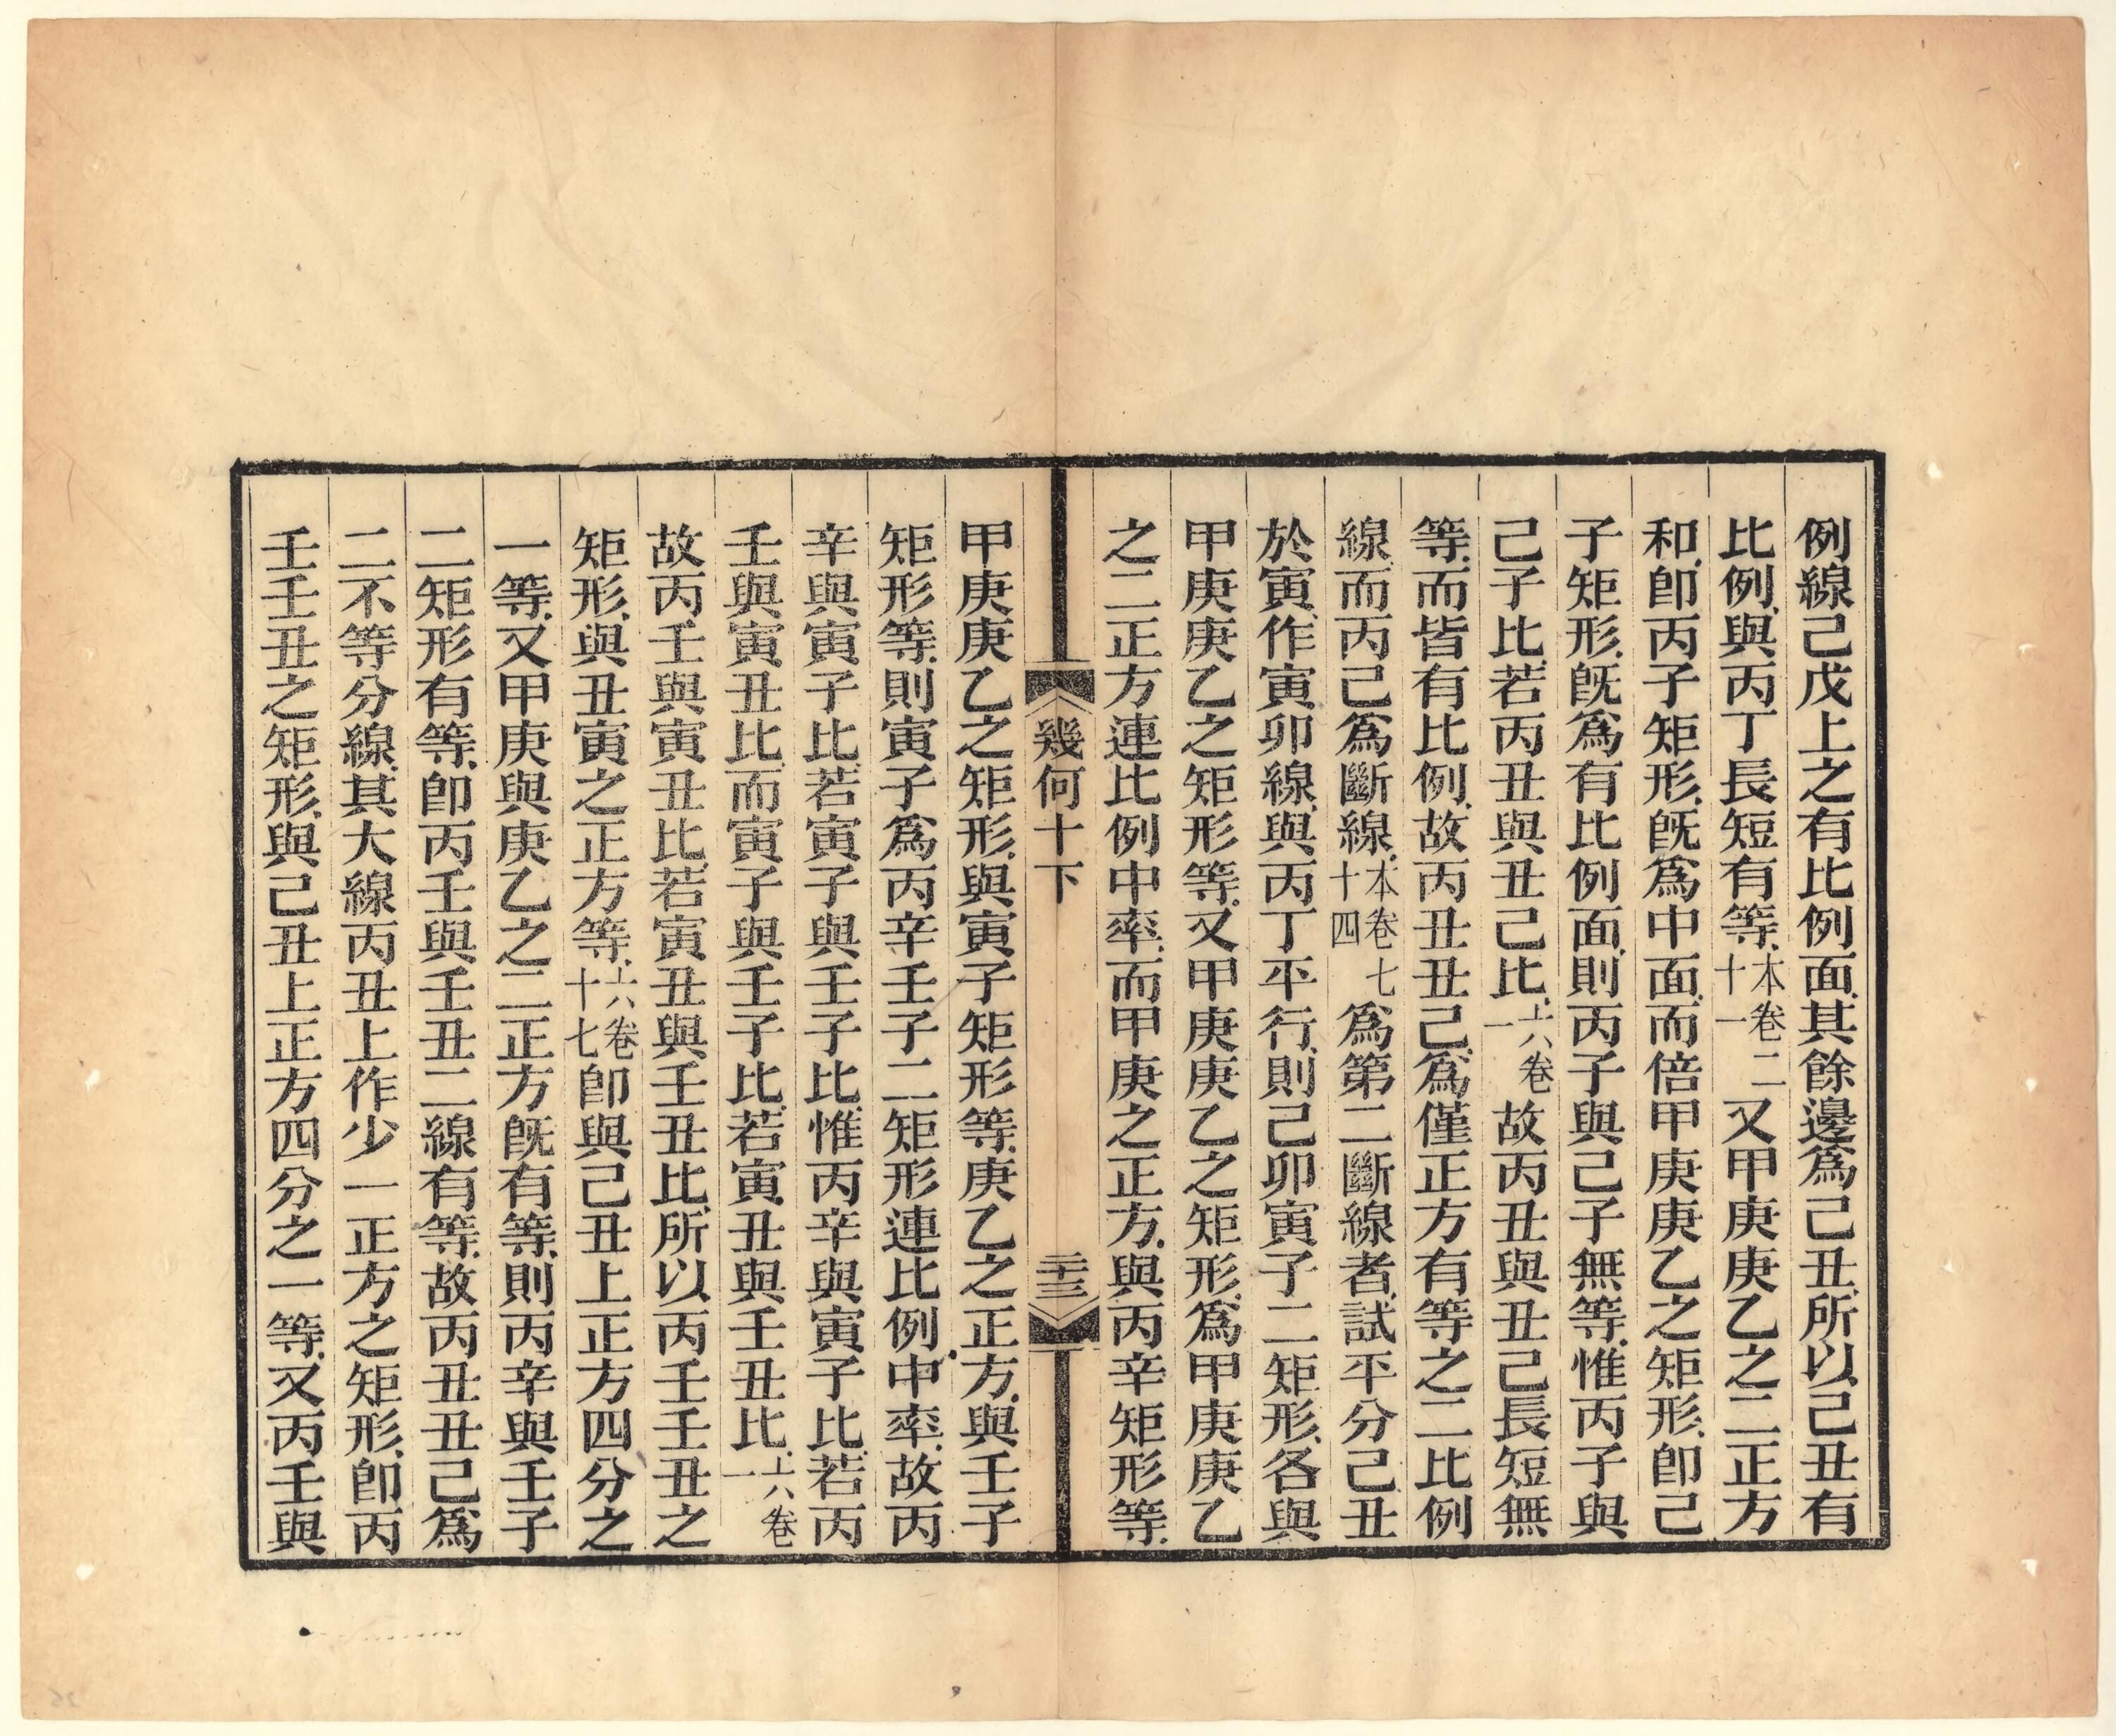 例線己戊上之有比例面其餘邊爲己丑所以己丑有
比例與丙丁長短有等本卷二十一又甲庚庚乙之二正方
和卽丙子矩形旣爲中面而倍甲庚庚乙之矩形卽己
子矩形旣爲有比例面則丙子與己子無等惟丙子與
己子比若丙丑與丑己比六卷一故丙丑與丑己長短無
等而皆有比例故丙丑丑己爲僅正方有等之二比例
線而丙己爲斷線本卷七十四爲第二斷線者試平分己丑
於寅作寅卯線與丙丁平行則己卯寅子二矩形各與
甲庚庚乙之矩形等又甲庚庚乙之矩形爲甲庚庚乙
之二正方連比例中率而甲庚之正方與丙辛矩形等
幾何十下
二十三
甲庚庚乙之矩形與寅子矩形等庚乙之正方與壬子
矩形等則寅子爲丙辛壬子二矩形連比例中率故丙
辛與寅子比若寅子與壬子比惟丙辛與寅子比若丙
壬與寅丑比而寅子與壬子比若寅丑與壬丑比六卷一
故丙壬與寅丑比若寅丑與壬丑比所以丙壬壬丑之
矩形與丑寅之正方等六卷十七卽與己丑上正方四分之
一等又甲庚與庚乙之二正方旣有等則丙辛與壬子
二矩形有等卽丙壬與壬丑二線有等故丙丑丑己爲
二不等分線其大線丙丑上作少一正方之矩形卽丙
壬壬丑之矩形與己丑上正方四分之一等又丙壬與